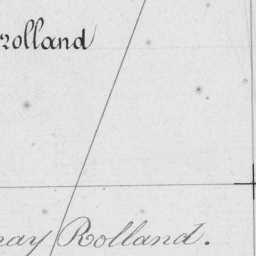 rolland
nay Rolland.